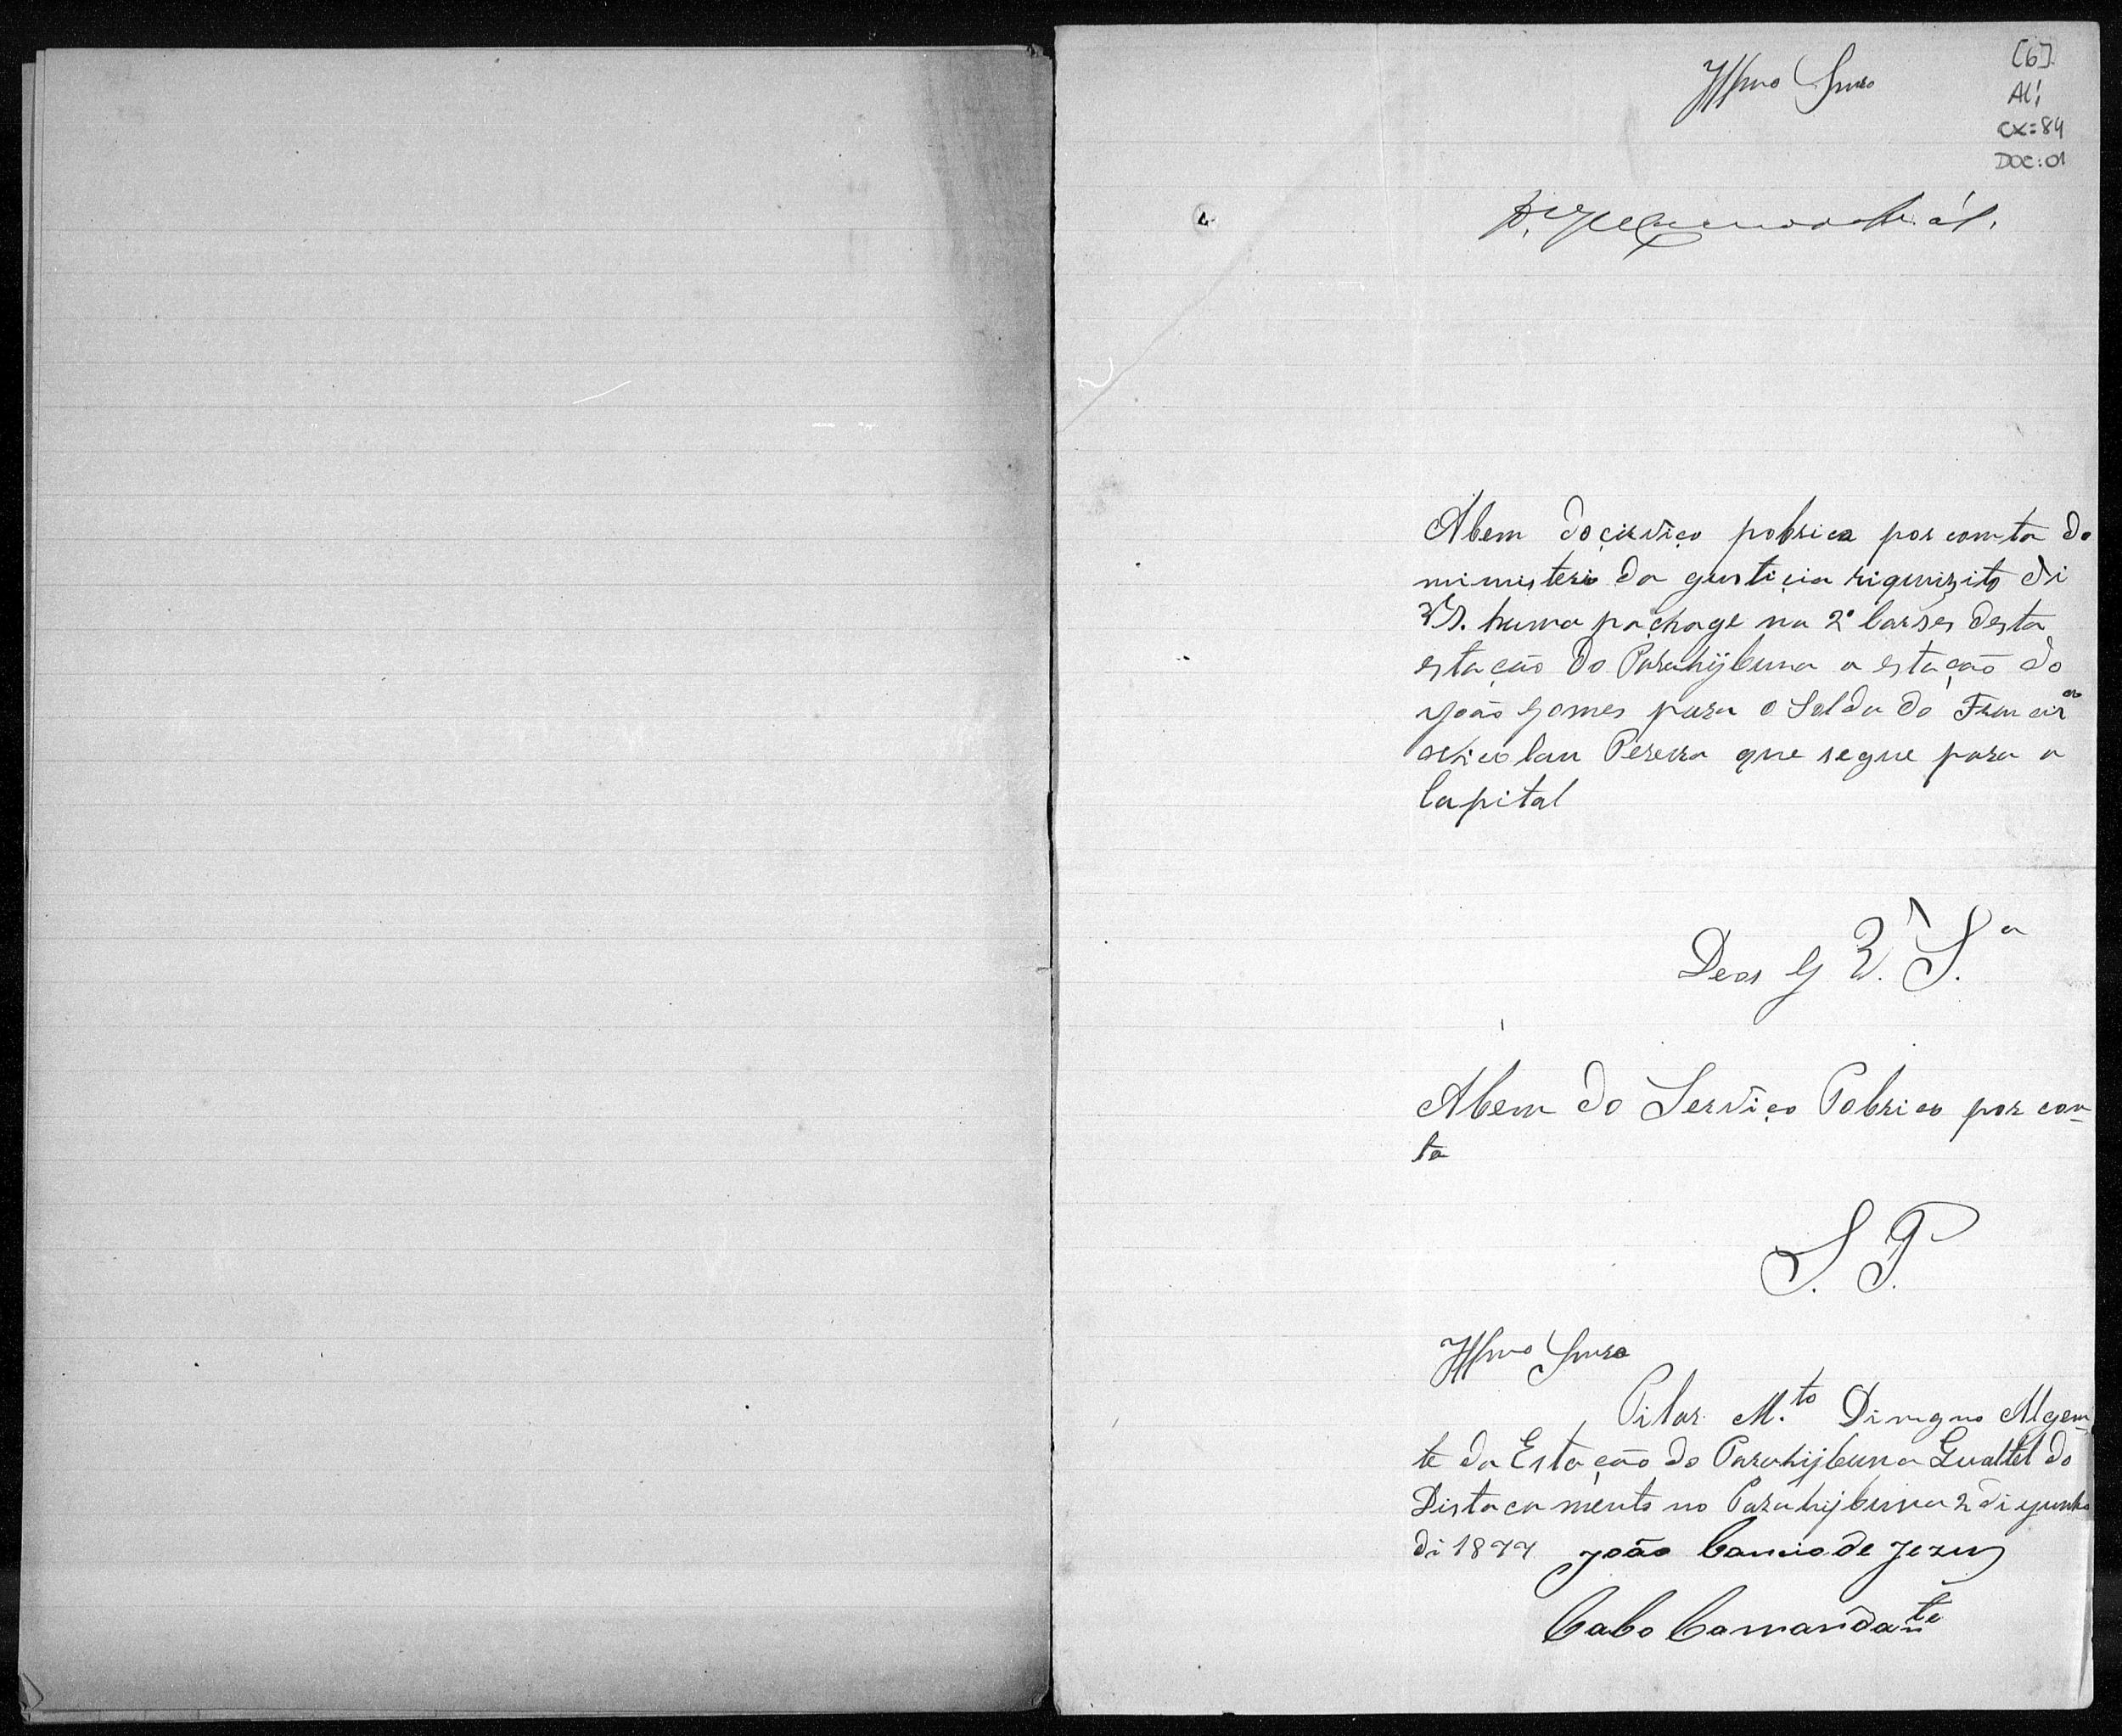 [6]
AI,
CX=84
DOC:01
Illmo Snro
Abem do cirviço pobrico por comta do
ministerio da gusticia riquizito di
VS. huma paçhage na 2ª Carses desta
estação do Parahijbuna a estação do
João Gomes para o Soldado Francis
co Nicolau Pereira que segue para a
Capital
Deos G V. S.ª
Abem do Serviço Pobrico por con
ta
S. P.
Illmo Snro
Pilar M.to Dinigno Algem
te da Estação do Parahijbuna Qualtel do
Distacamento no Parahijbuna 2 di junho
di 1877 João Cancio de Jezus
Cabo Comandante